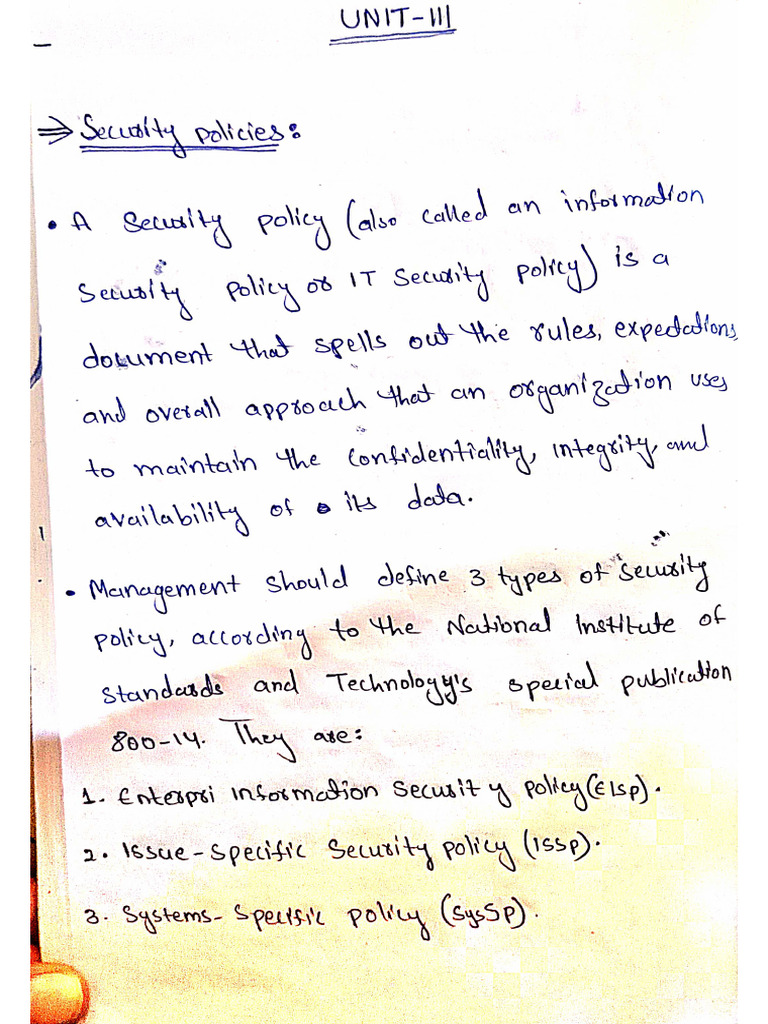 UNIT-III
⇒ Security policies:
• A security policy (also called an information
security policy or IT security policy) is a
document that spells out the rules, expectations,
and overall approach that an organization uses
to maintain the confidentiality, integrity, and
availability of its data.
• Management should define 3 types of security
policy, according to the National Institute of
Standards and Technology's special publication
800-14. They are:
1. Enterpri Information Security policy (EISP).
2. Issue-Specific Security policy (ISSP).
3. Systems-Specific policy (SysSP).